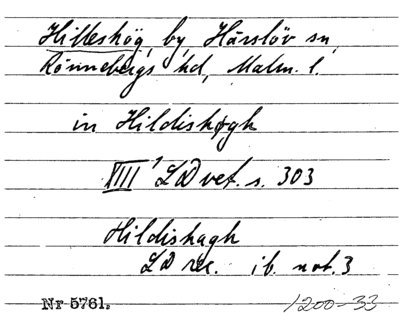 Hilleshög, by, Härslöv sn,
Rönnebergs hd, Malm. l.
in Hildishøgh
VIII 1 LD vet. s. 303
Hildishagh
LD rec. ib. not. 3
Nr 5761. 1200-33